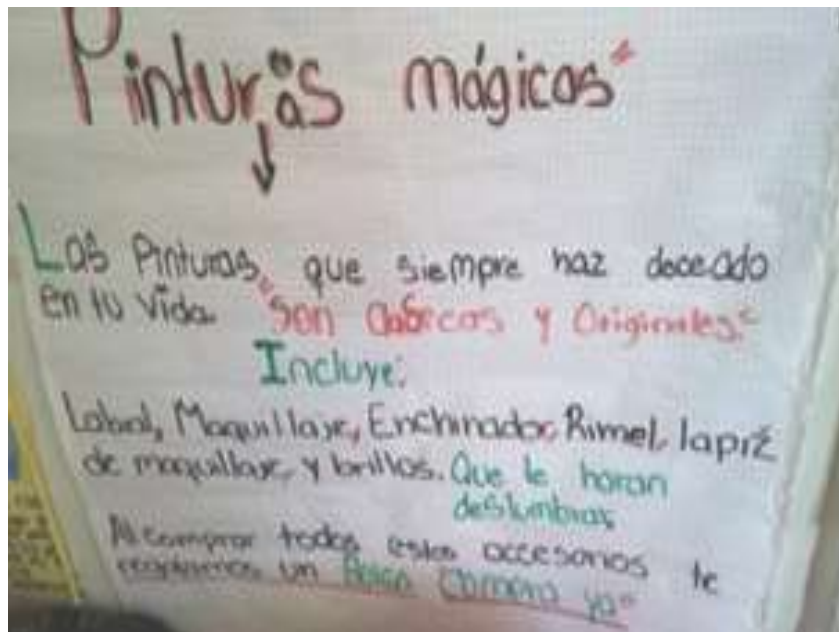 Pinturas mágicas"
Las Pinturas, que siempre haz deceado
en tu vida. "Son y Originales."
Incluye:
Labial, Maquillaje, Enchinador, Rimel, lapiz
de maquillaje, y brillos. Que te haran
deslumbrar
Al comprar todos estos accesorios te
un Compra ya"